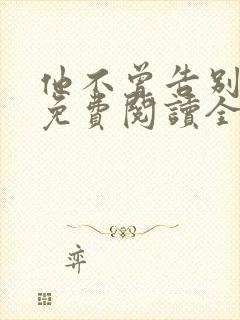 他不曾告别
免費閱讀全
弈